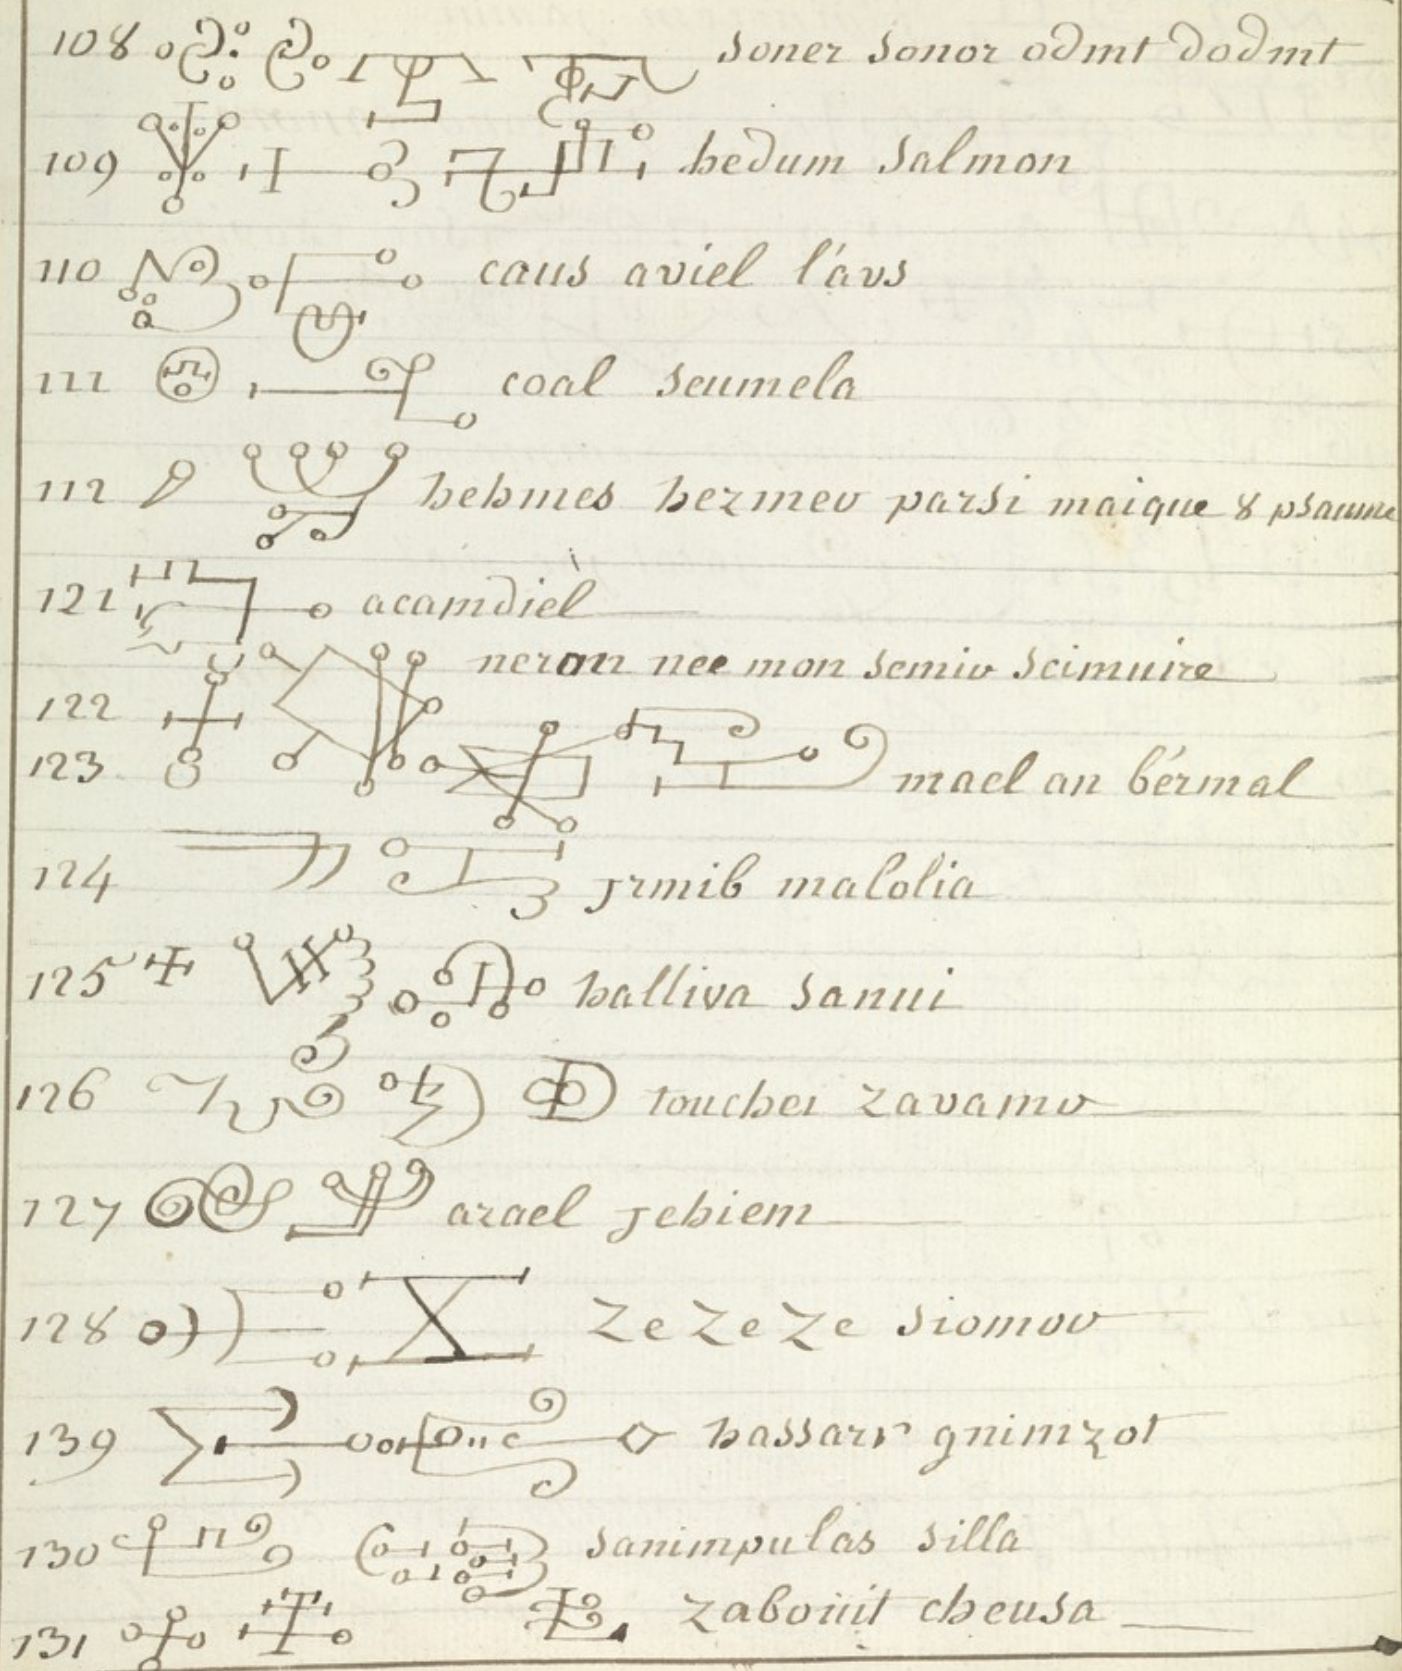 108 soner sonor odmt dodmt
109 hedum salmon
110 caus aviel l'avs
111 coal seumela
112 hehmes hezmev parsi maique 8 psaume
121 acamdièl
122 neron nee mon semiv scimuire
123 mael an bérmal
124 jrmib malolia
125 halliva sanui
126 touchei zavamv
127 arael jehiem
128 ze ze ze siomov
139 hassarr gnimzot
130 sanimpulas silla
131 zabouit cheusa